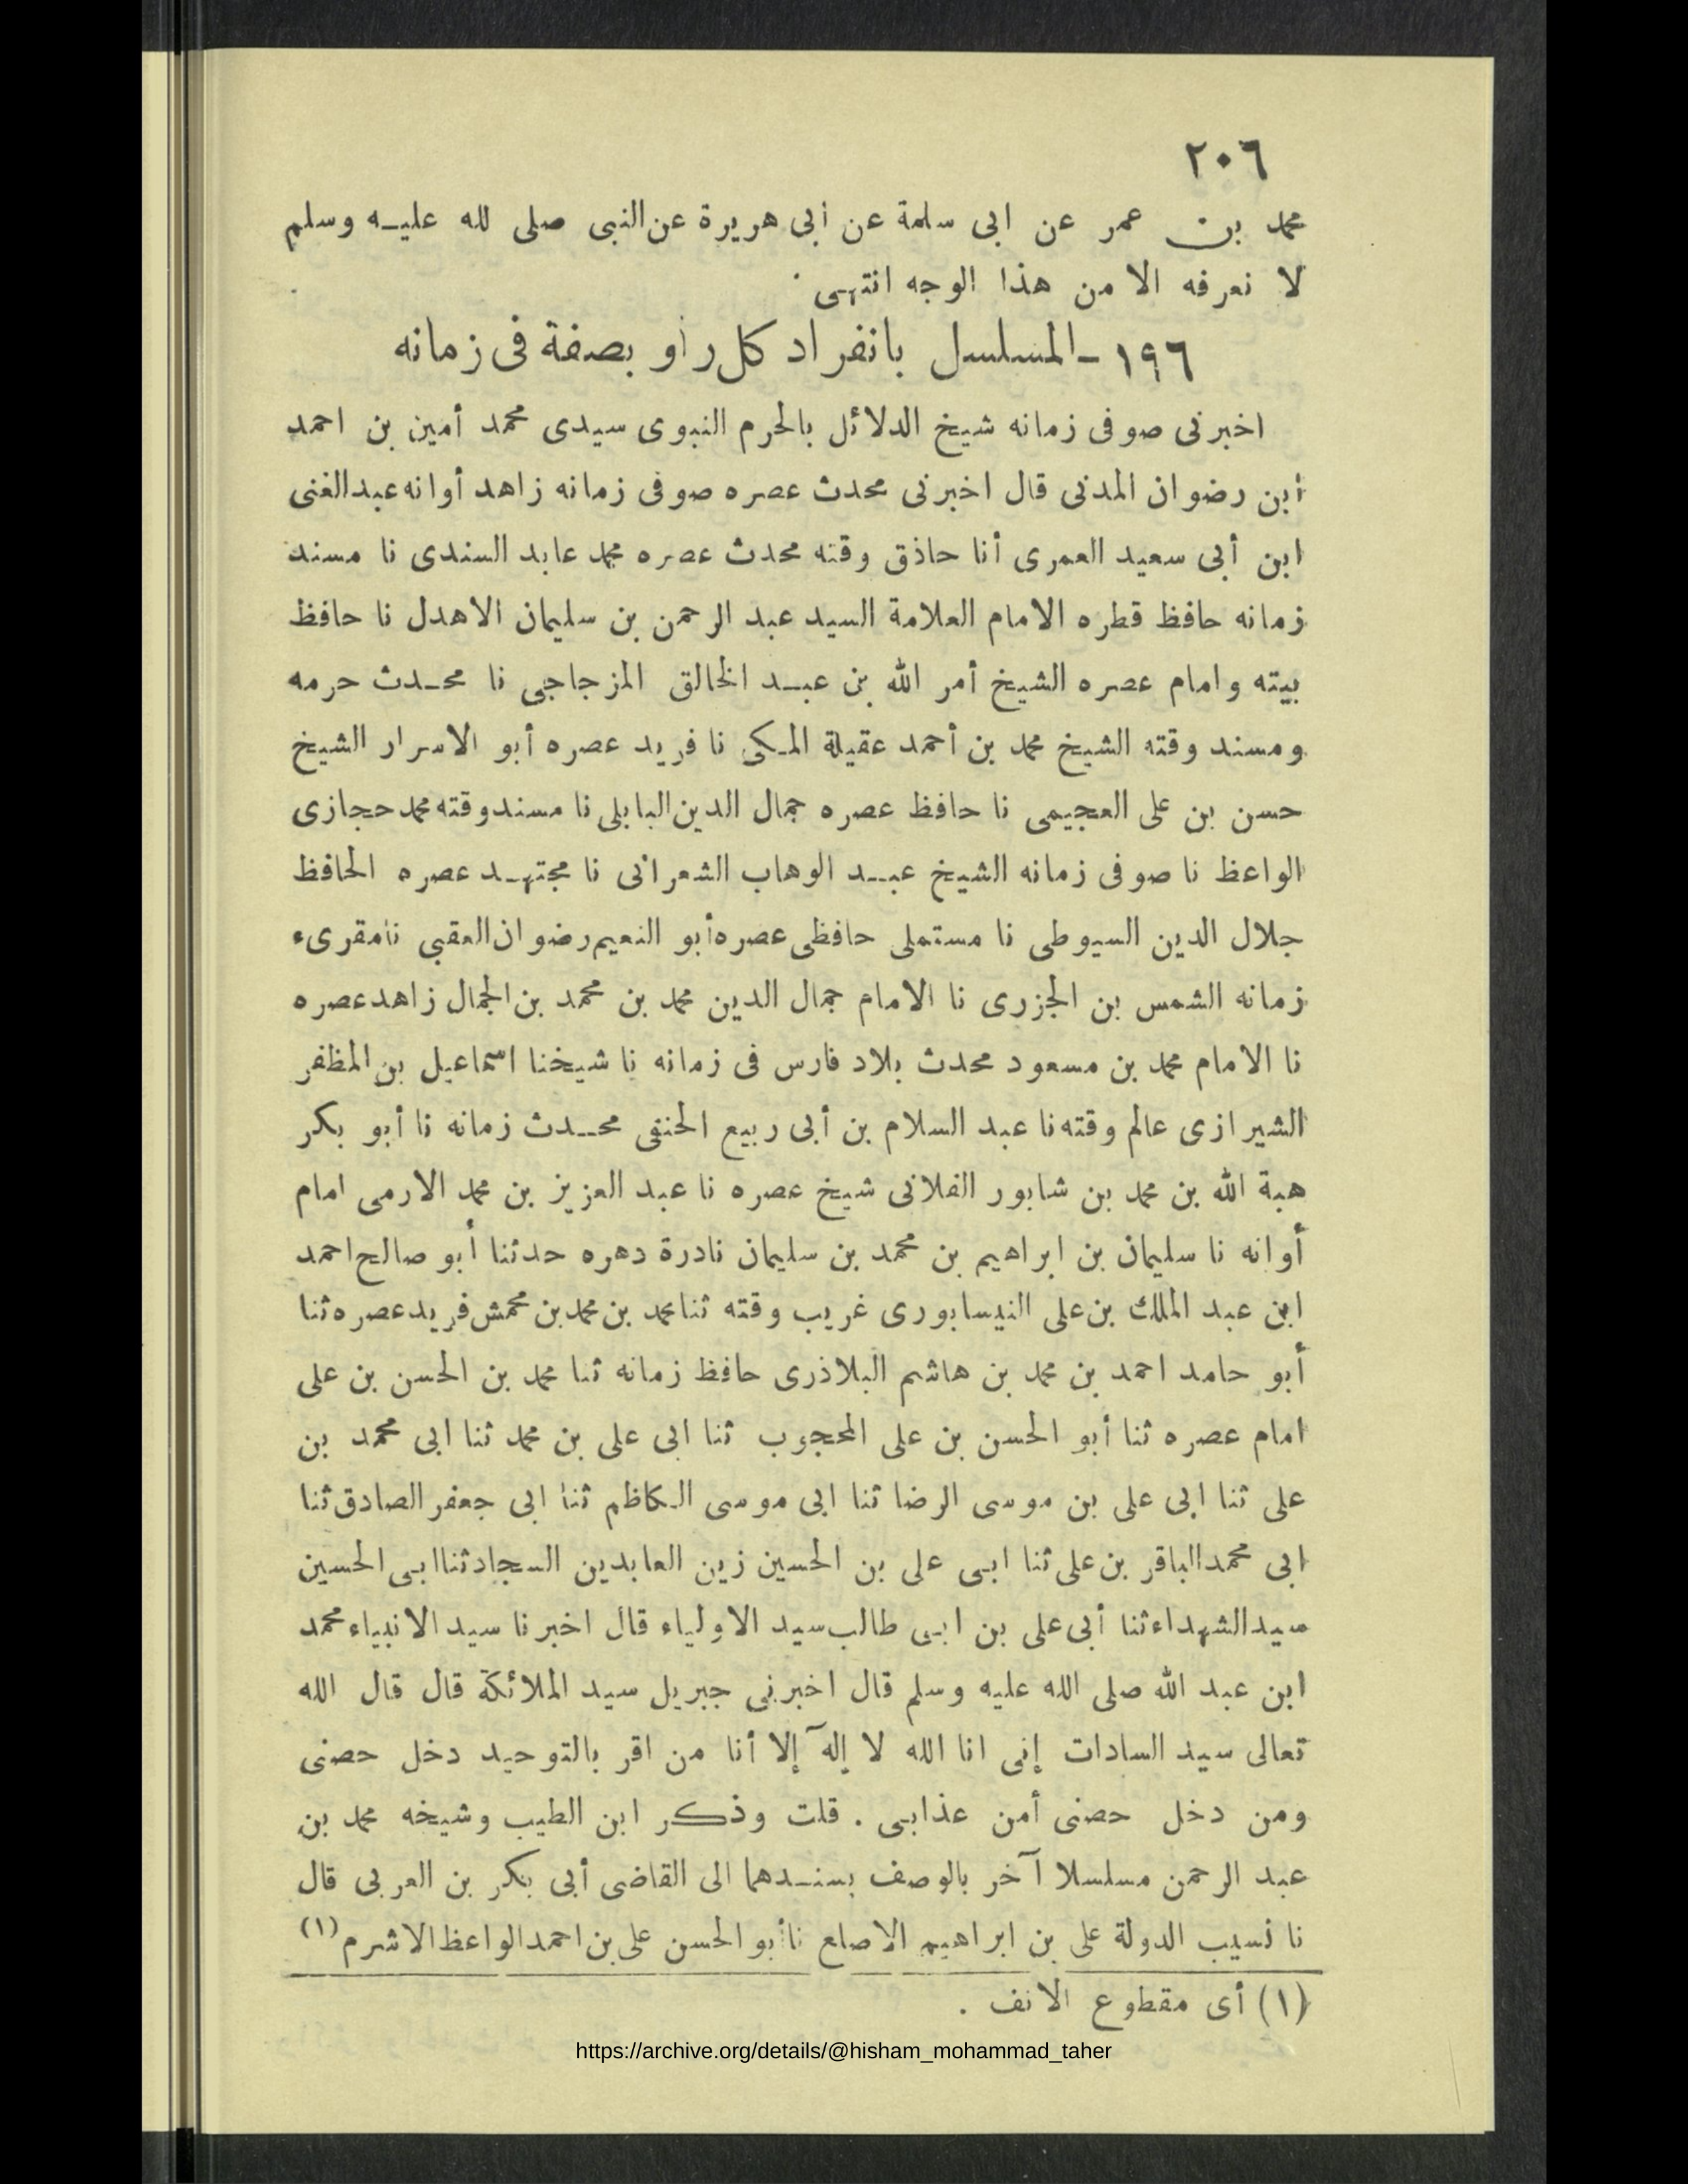 ٢٠٦
محمد بن عمر عن ابى سلمة عن أبى هريرة عن النبى صلى لله عليه وسلم
لا نعرفه الا من هذا الوجه انتهى.
١٩٦ - المسلسل بانفراد كل راو بصفة فى زمانه
اخبرنى صوفى زمانه شيخ الدلائل بالحرم النبوى سيدى محمد أمين بن احمد
ابن رضوان المدنى قال اخبرنى محدث عصره صوفى زمانه زاهد أوانه عبد الغنى
ابن أبى سعيد العمرى أنا حاذق وقته محدث عصره محمد عابد السندى نا مسند
زمانه حافظ قطره الامام العلامة السيد عبد الرحمن بن سليمان الاهدل نا حافظ
بيته وامام عصره الشيخ أمر الله بن عبد الخالق المزجاجى نا محدث حرمه
ومسند وقته الشيخ محمد بن أحمد عقيلة المكى نا فريد عصره أبو الاسرار الشيخ
حسن بن على العجيمى نا حافظ عصره جمال الدين البابلى نا مسند وقته محمد حجازى
الواعظ نا صوفى زمانه الشيخ عبد الوهاب الشعرانى نا مجتهد عصره الحافظ
جلال الدين السيوطى نا مستملى حافظى عصره أبو النعيم رضوان العقبى نا مقرىء
زمانه الشمس بن الجزرى نا الامام جمال الدين محمد بن محمد بن الجمال زاهد عصره
نا الامام محمد بن مسعود محدث بلاد فارس فى زمانه نا شيخنا اسماعيل بن المظفر
الشيرازى عالم وقته نا عبد السلام بن أبى ربيع الحنفى محدث زمانه نا أبو بكر
هبة الله بن محمد بن شابور الفلانى شيخ عصره نا عبد العزيز بن محمد الارمى امام
أوانه نا سليمان بن ابراهيم بن محمد بن سليمان نادرة دهره حدثنا أبو صالح احمد
ابن عبد الملك بن على النيسابورى غريب وقته ثنا محمد بن محمد بن محمش فريد عصره ثنا
أبو حامد احمد بن محمد بن هاشم البلاذرى حافظ زمانه ثنا محمد بن الحسن بن على
امام عصره ثنا أبو الحسن بن على المحجوب ثنا ابى على بن محمد ثنا ابى محمد بن
على ثنا ابى على بن موسى الرضا ثنا ابى موسى الكاظم ثنا ابى جعفر الصادق ثنا
ابى محمد الباقر بن على ثنا ابى على بن الحسين زين العابدين السجاد ثنا ابى الحسين
سيد الشهداء ثنا أبى على بن ابى طالب سيد الاولياء قال اخبرنا سيد الانبياء محمد
ابن عبد الله صلى الله عليه وسلم قال اخبرنى جبريل سيد الملائكة قال قال الله
تعالى سيد السادات إنى انا الله لا إله إلا أنا من اقر بالتوحيد دخل حصنى
ومن دخل حصنى أمن عذابى . قلت وذكر ابن الطيب وشيخه محمد بن
عبد الرحمن مسلسلا آخر بالوصف بسندهما الى القاضى أبى بكر بن العربى قال
نا نسيب الدولة على بن ابراهيم الاصلع نا أبو الحسن على بن احمد الواعظ الاشرم (١)
(١) أى مقطوع الانف .
https://archive.org/details/@hisham_mohammad_taher